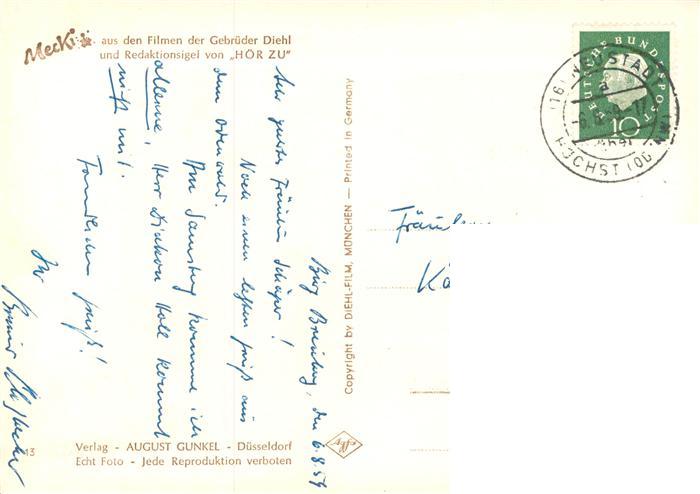 Mecki aus den Filmen der Gebrüder Diehl
und Redaktionsigel von „HÖR ZU"
Burg Breuberg, den 6.8.59
Sehr geehrtes Fräulein Schäfer!
Noch einen letzten Gruß aus
dem Odenwald.
Am Samstag komme ich
alleine, Herr Diakon Holl kommt
nicht mit.
Freundlichen Gruß!
Ihr
Copyright by DIEHL-FILM, MÜNCHEN — Printed in Germany
DEUTSCHE BUNDESPOST
10
(16) NEUSTADT
a
HÖCHST (ODENW)
Fräul
Kä
13
Verlag - AUGUST GUNKEL - Düsseldorf
Echt Foto - Jede Reproduktion verboten